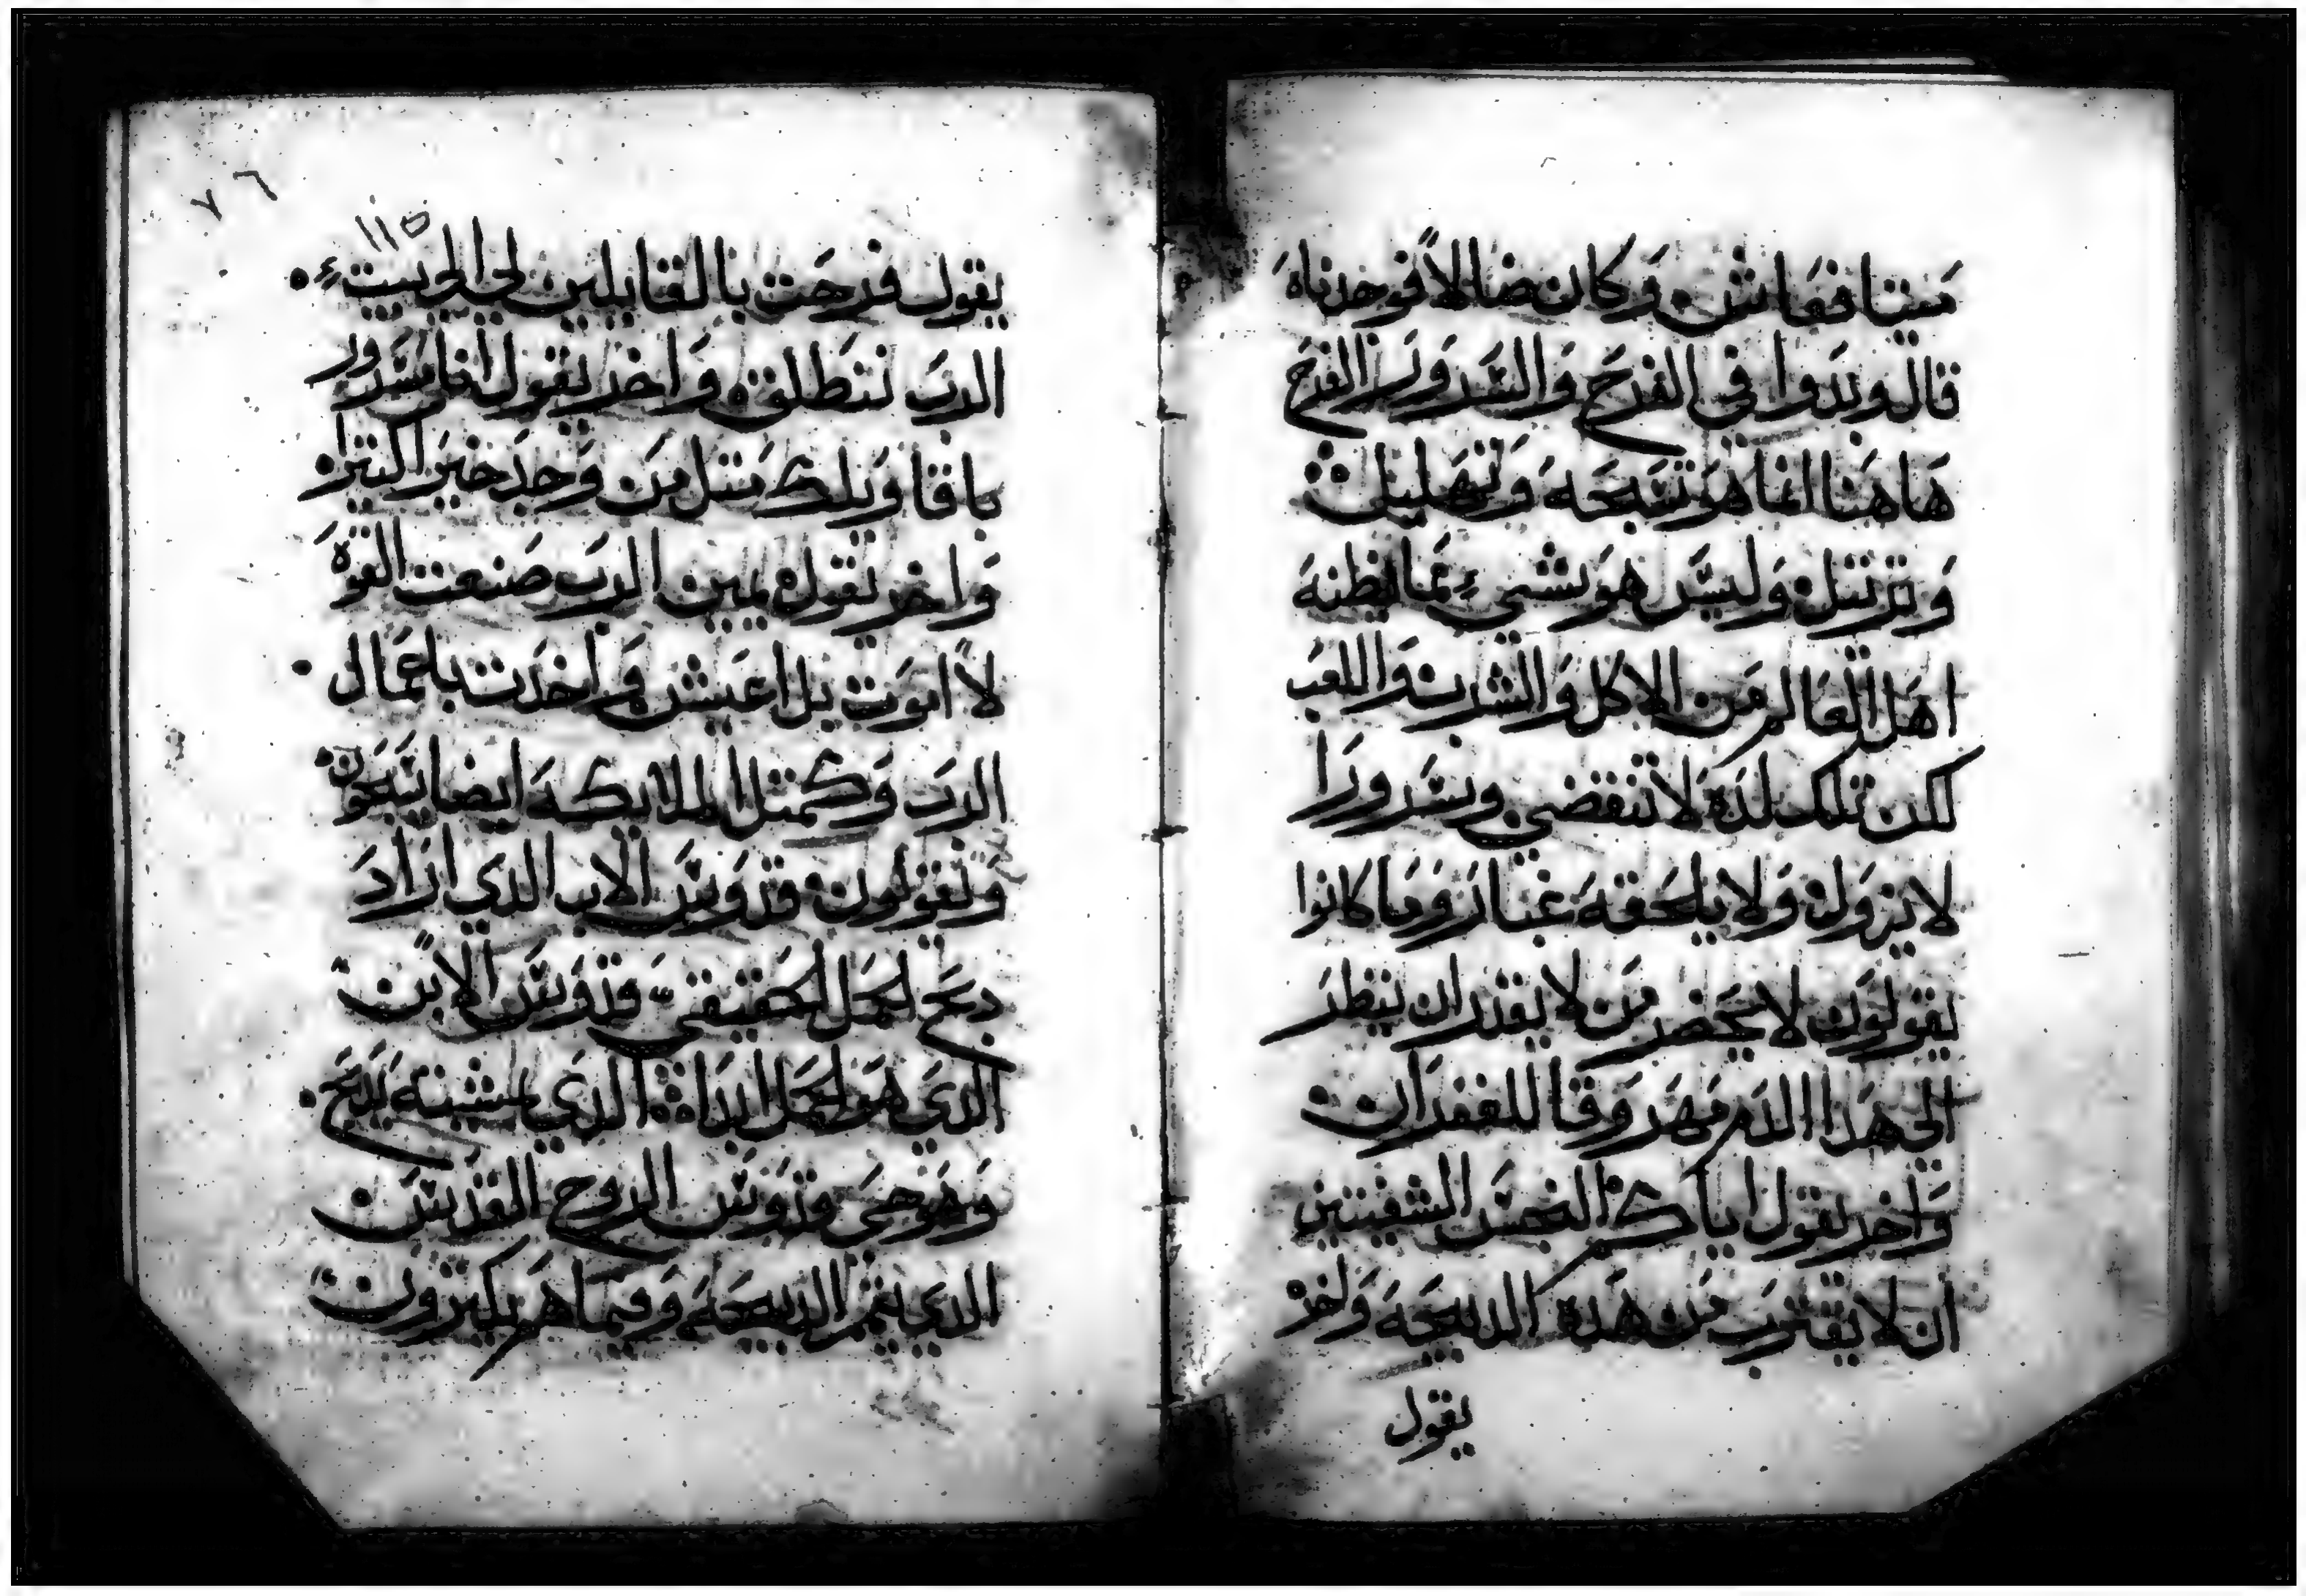 ميتا فعاش. وكان ضالاً فوجدناه
قال وبدوا في الفرح والسرور الفرح
هاهنا انما هو تسبحه وتهليل
وترتيل وليس هو بشيء مما يظنه
اهل العالم من الاكل والشرب واللعب
لكن تلك لده لا تنقضي وسرورا
لا يزول ولا يلحقه غبار وما كانوا
يقولون لا يحضر من لا يقدر ان ينظر
الى هدا الدم مهروقا للغفران
واخر يقول اياكم النجس الشفيتين
ان لا يقترب من هده الدبيحه واخر
يقول
٧٦
١١٥
يقول فرحت بالقايلين لي الي بيت
الرب ننطلق. واخر يقول انا مسرور
باقاويلك متل من وجد خيرا كتيرا.
واخر يقول يمين الرب صنعت القوه
لا اموت بل اعيش واخدت باعمال.
الرب وكمتل الملايكه ايضا يسبحون
ويقولون قدوس الاب الدي اراد
دبح لحمل الحقيقي قدوس الابن
الدي هو لحمل الداة الدي لمشيته يدبح.
وهو حي قدوس الروح القدس
الدي يتمم الدبيحه وفيما هم يكبرون